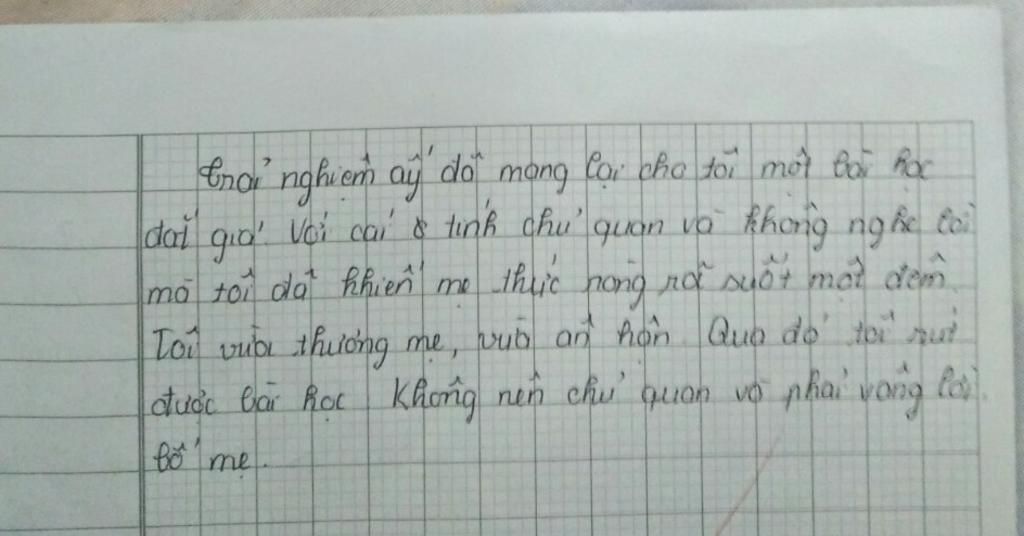 trải nghiệm ấy đã mang lại cho tôi một bài học
đắt giá. Với cái tính chủ quan và không nghe lời
mà tôi đã khiến mẹ thức nóng nả suốt một đêm.
Tôi vừa thương mẹ, vừa ân hận. Qua đó tôi rút
được bài học không nên chủ quan và phải vâng lời
bố mẹ.